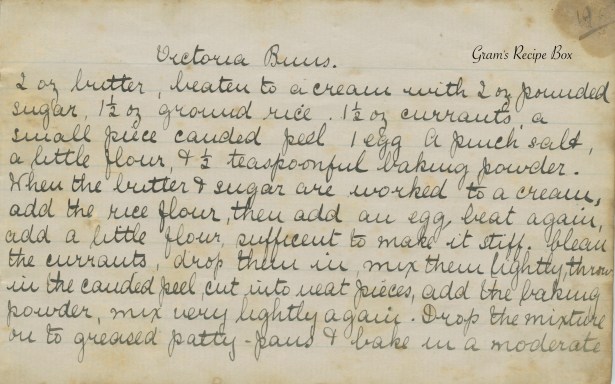 14
Victoria Buns.
Gram's Recipe Box
2 oz butter, beaten to a cream with 2 oz pounded
sugar, 1½ oz ground rice. 1½ oz currants, a
small piece candied peel 1 egg A pinch salt,
a little flour, & ½ teaspoonful baking powder.
When the butter & sugar are worked to a cream,
add the rice flour, then add an egg, beat again,
add a little flour, sufficent to make it stiff. Clean
the currants, drop them in, mix them lightly, throw
in the candied peel, cut into neat pieces, add the baking
powder, mix very lightly again. Drop the mixture
on to greased patty-pans & bake in a moderate